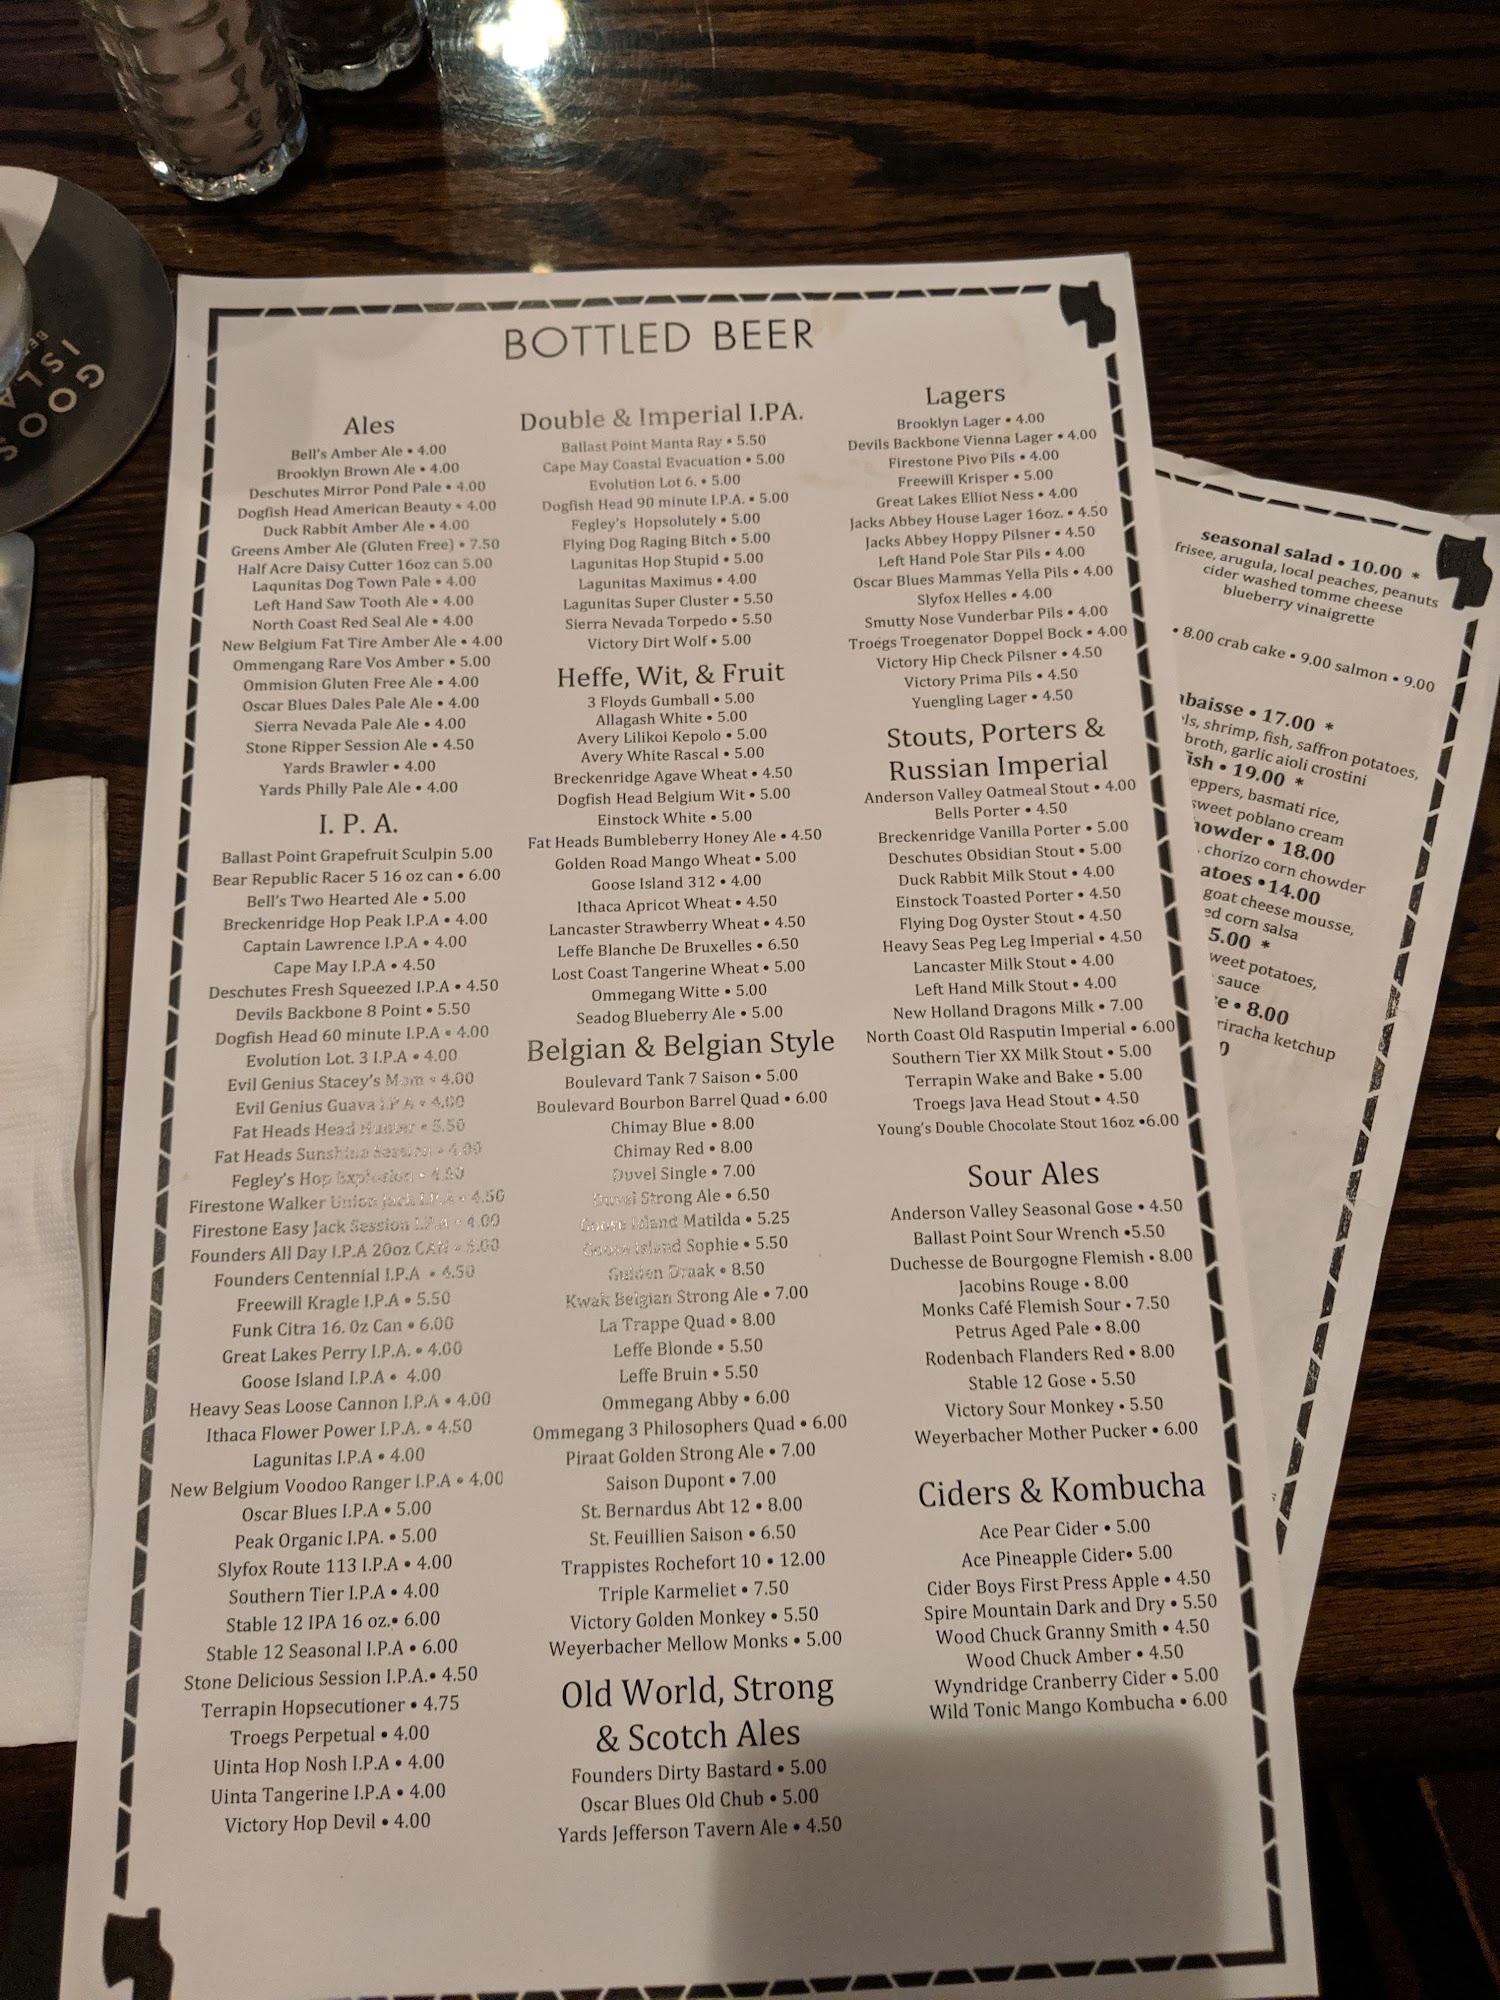 BOTTLED BEER
Ales
Bell's Amber Ale • 4.00
Brooklyn Brown Ale • 4.00
Deschutes Mirror Pond Pale • 4.00
Dogfish Head American Beauty • 4.00
Duck Rabbit Amber Ale • 4.00
Greens Amber Ale (Gluten Free) • 7.50
Half Acre Daisy Cutter 16oz can 5.00
Laqunitas Dog Town Pale • 4.00
Left Hand Saw Tooth Ale • 4.00
North Coast Red Seal Ale • 4.00
New Belgium Fat Tire Amber Ale • 4.00
Ommengang Rare Vos Amber • 5.00
Ommision Gluten Free Ale • 4.00
Oscar Blues Dales Pale Ale • 4.00
Sierra Nevada Pale Ale • 4.00
Stone Ripper Session Ale • 4.50
Yards Brawler • 4.00
Yards Philly Pale Ale • 4.00
I. P. A.
Ballast Point Grapefruit Sculpin 5.00
Bear Republic Racer 5 16 oz can • 6.00
Bell's Two Hearted Ale • 5.00
Breckenridge Hop Peak I.P.A • 4.00
Captain Lawrence I.P.A • 4.00
Cape May I.P.A • 4.50
Deschutes Fresh Squeezed I.P.A • 4.50
Devils Backbone 8 Point • 5.50
Dogfish Head 60 minute I.P.A • 4.00
Evolution Lot. 3 I.P.A • 4.00
Evil Genius Stacey's Mom • 4.00
Evil Genius Guava I.P.A • 4.00
Fat Heads Head Hunter • 5.50
Fat Heads Sunshine Session • 4.00
Fegley's Hop Explosion •
Firestone Walker Union Jack I.P.A • 4.50
Firestone Easy Jack Session I.P.A • 4.00
Founders All Day I.P.A 20oz CAN •
Founders Centennial I.P.A • 4.50
Freewill Kragle I.P.A • 5.50
Funk Citra 16. 0z Can • 6.00
Great Lakes Perry I.P.A. • 4.00
Goose Island I.P.A • 4.00
Heavy Seas Loose Cannon I.P.A • 4.00
Ithaca Flower Power I.P.A. • 4.50
Lagunitas I.P.A • 4.00
New Belgium Voodoo Ranger I.P.A • 4.00
Oscar Blues I.P.A • 5.00
Peak Organic I.PA. • 5.00
Slyfox Route 113 I.P.A • 4.00
Southern Tier I.P.A • 4.00
Stable 12 IPA 16 oz.• 6.00
Stable 12 Seasonal I.P.A • 6.00
Stone Delicious Session I.P.A.• 4.50
Terrapin Hopsecutioner • 4.75
Troegs Perpetual • 4.00
Uinta Hop Nosh I.P.A • 4.00
Uinta Tangerine I.P.A • 4.00
Victory Hop Devil • 4.00
Double & Imperial I.PA.
Ballast Point Manta Ray • 5.50
Cape May Coastal Evacuation • 5.00
Evolution Lot 6. • 5.00
Dogfish Head 90 minute I.P.A. • 5.00
Fegley's Hopsolutely • 5.00
Flying Dog Raging Bitch • 5.00
Lagunitas Hop Stupid • 5.00
Lagunitas Maximus • 4.00
Lagunitas Super Cluster • 5.50
Sierra Nevada Torpedo • 5.50
Victory Dirt Wolf • 5.00
Heffe, Wit, & Fruit
3 Floyds Gumball • 5.00
Allagash White • 5.00
Avery Lilikoi Kepolo • 5.00
Avery White Rascal • 5.00
Breckenridge Agave Wheat • 4.50
Dogfish Head Belgium Wit • 5.00
Einstock White • 5.00
Fat Heads Bumbleberry Honey Ale • 4.50
Golden Road Mango Wheat • 5.00
Goose Island 312 • 4.00
Ithaca Apricot Wheat • 4.50
Lancaster Strawberry Wheat • 4.50
Leffe Blanche De Bruxelles • 6.50
Lost Coast Tangerine Wheat • 5.00
Ommegang Witte • 5.00
Seadog Blueberry Ale • 5.00
Belgian & Belgian Style
Boulevard Tank 7 Saison • 5.00
Boulevard Bourbon Barrel Quad • 6.00
Chimay Blue • 8.00
Chimay Red • 8.00
Duvel Single • 7.00
Duvel Strong Ale • 6.50
Goose Island Matilda • 5.25
Goose Island Sophie • 5.50
Gulden Draak • 8.50
Kwak Belgian Strong Ale • 7.00
La Trappe Quad • 8.00
Leffe Blonde • 5.50
Leffe Bruin • 5.50
Ommegang Abby • 6.00
Ommegang 3 Philosophers Quad • 6.00
Piraat Golden Strong Ale • 7.00
Saison Dupont • 7.00
St. Bernardus Abt 12 • 8.00
St. Feuillien Saison • 6.50
Trappistes Rochefort 10 • 12.00
Triple Karmeliet • 7.50
Victory Golden Monkey • 5.50
Weyerbacher Mellow Monks • 5.00
Old World, Strong
& Scotch Ales
Founders Dirty Bastard • 5.00
Oscar Blues Old Chub • 5.00
Yards Jefferson Tavern Ale • 4.50
Lagers
Brooklyn Lager • 4.00
Devils Backbone Vienna Lager • 4.00
Firestone Pivo Pils • 4.00
Freewill Krisper • 5.00
Great Lakes Elliot Ness • 4.00
Jacks Abbey House Lager 16oz. • 4.50
Jacks Abbey Hoppy Pilsner • 4.50
Left Hand Pole Star Pils • 4.00
Oscar Blues Mammas Yella Pils • 4.00
Slyfox Helles • 4.00
Smutty Nose Vunderbar Pils • 4.00
Troegs Troegenator Doppel Bock • 4.00
Victory Hip Check Pilsner • 4.50
Victory Prima Pils • 4.50
Yuengling Lager • 4.50
Stouts, Porters &
Russian Imperial
Anderson Valley Oatmeal Stout • 4.00
Bells Porter • 4.50
Breckenridge Vanilla Porter • 5.00
Deschutes Obsidian Stout • 5.00
Duck Rabbit Milk Stout • 4.00
Einstock Toasted Porter • 4.50
Flying Dog Oyster Stout • 4.50
Heavy Seas Peg Leg Imperial • 4.50
Lancaster Milk Stout • 4.00
Left Hand Milk Stout • 4.00
New Holland Dragons Milk • 7.00
North Coast Old Rasputin Imperial • 6.00
Southern Tier XX Milk Stout • 5.00
Terrapin Wake and Bake • 5.00
Troegs Java Head Stout • 4.50
Young's Double Chocolate Stout 16oz •6.00
Sour Ales
Anderson Valley Seasonal Gose • 4.50
Ballast Point Sour Wrench •5.50
Duchesse de Bourgogne Flemish • 8.00
Jacobins Rouge • 8.00
Monks Café Flemish Sour • 7.50
Petrus Aged Pale • 8.00
Rodenbach Flanders Red • 8.00
Stable 12 Gose • 5.50
Victory Sour Monkey • 5.50
Weyerbacher Mother Pucker • 6.00
Ciders & Kombucha
Ace Pear Cider • 5.00
Ace Pineapple Cider• 5.00
Cider Boys First Press Apple • 4.50
Spire Mountain Dark and Dry • 5.50
Wood Chuck Granny Smith • 4.50
Wood Chuck Amber • 4.50
Wyndridge Cranberry Cider • 5.00
Wild Tonic Mango Kombucha • 6.00
seasonal salad • 10.00 *
frisee, arugula, local peaches, peanuts
cider washed tomme cheese
blueberry vinaigrette
• 8.00 crab cake • 9.00 salmon • 9.00
baisse • 17.00 *
ls, shrimp, fish, saffron potatoes,
broth, garlic aioli crostini
ish • 19.00 *
eppers, basmati rice,
sweet poblano cream
howder • 18.00
, chorizo corn chowder
atoes •14.00
goat cheese mousse,
ed corn salsa
5.00 *
weet potatoes,
sauce
e • 8.00
riracha ketchup
0
GOOSE
ISLA